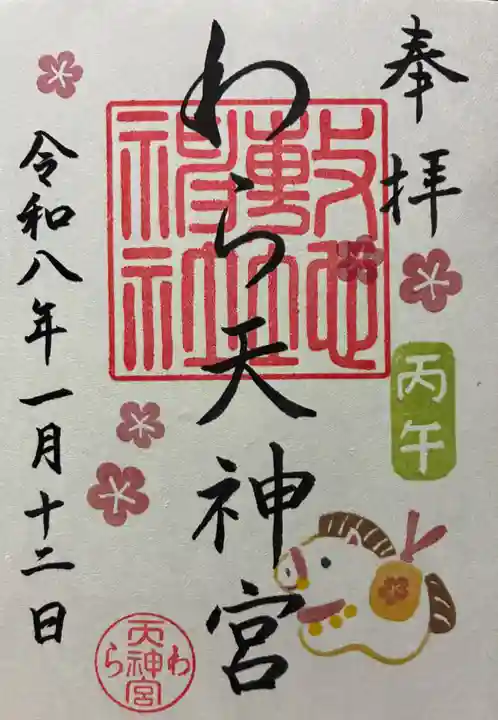 奉拝
丙午
わら天神宮
令和八年一月十二日
敷地神社
わら天神宮